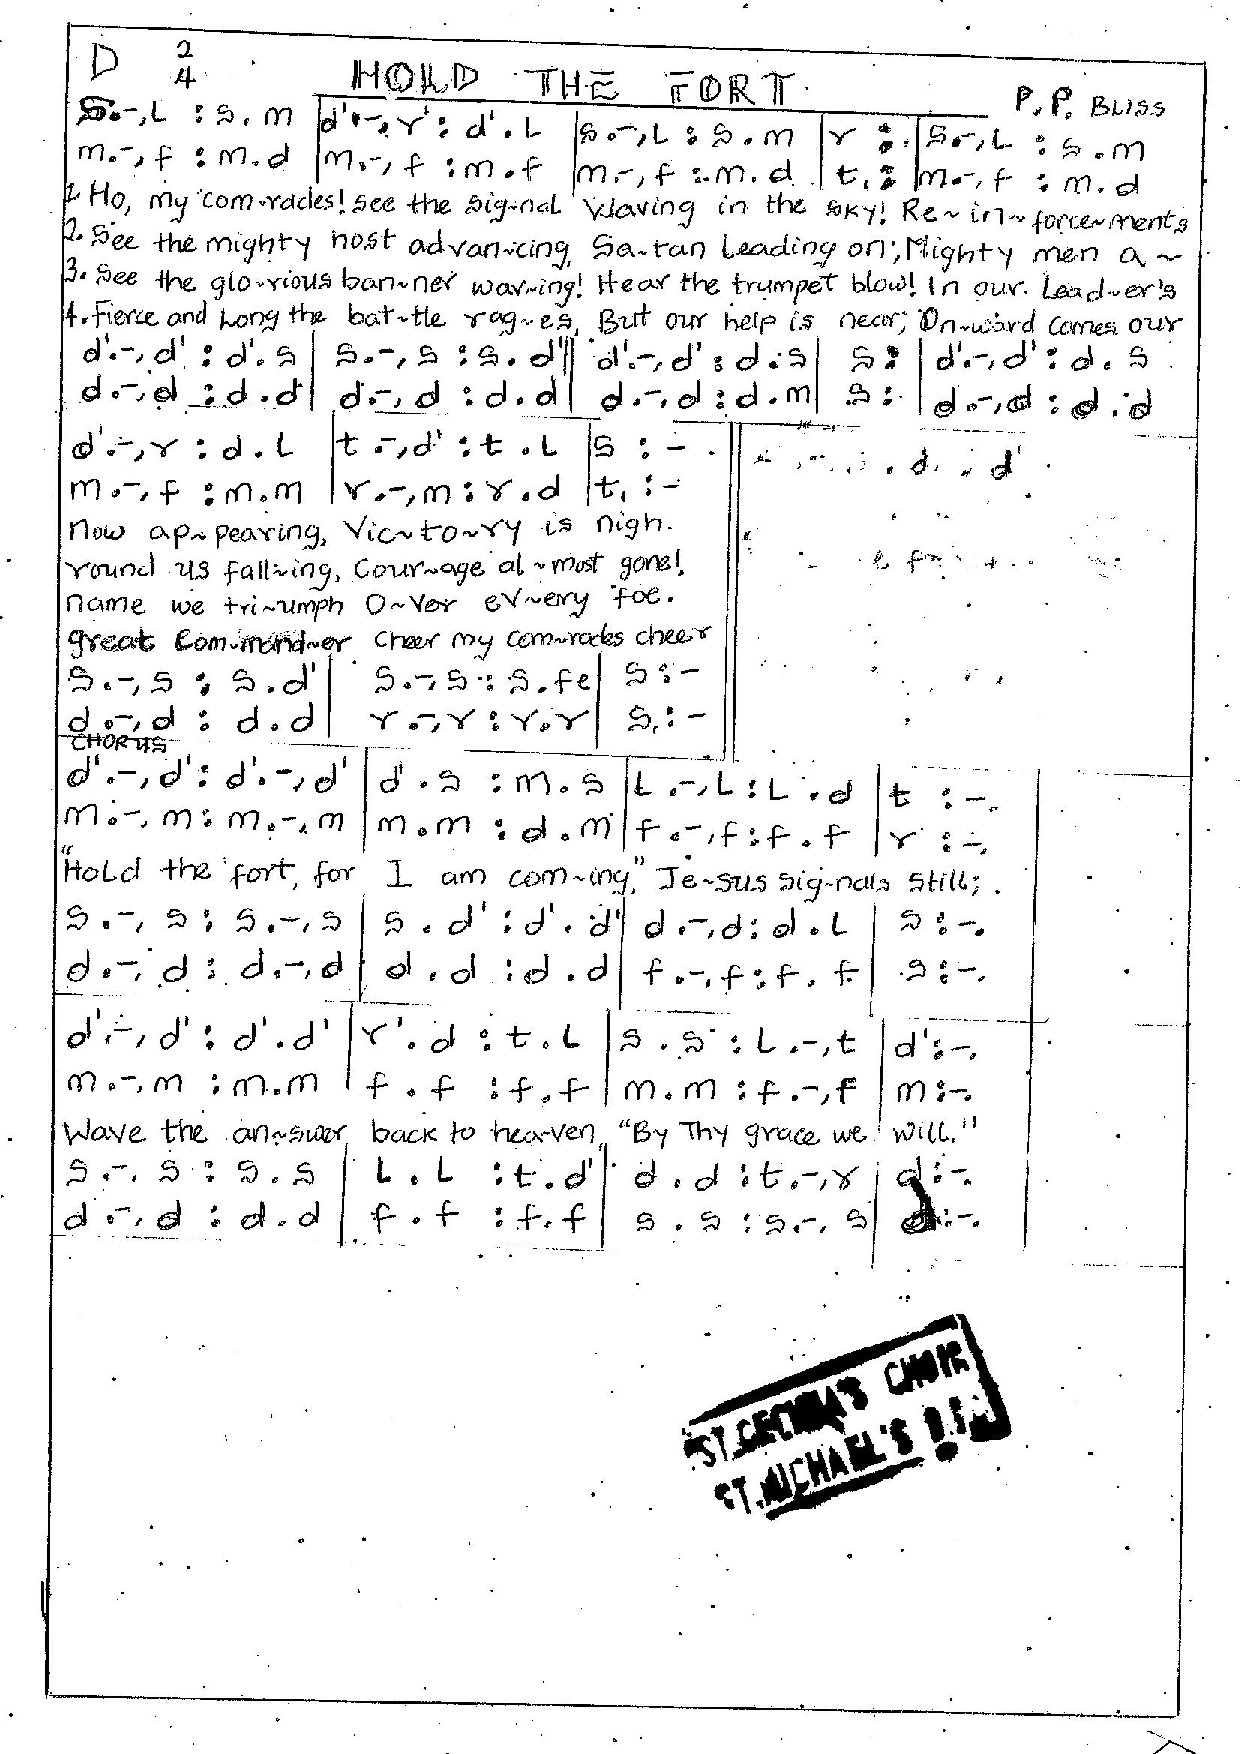 D 2/4
HOLD THE FORT
P.P. BLISS
s.-,L : s.m | d'.-,r' : d'.L | s.-,L : s.m | r :. | s.-,L : s.m
m.-,f : m.d | m.-,f : m.f | m.-,f : m.d | t, : | m.-,f : m.d
1. Ho, my com~rades! see the sig~nal Waving in the sky! Re~in~force~ments
2. See the mighty host advan~cing, Sa~tan Leading on; Mighty men a~
3. See the glo~rious ban~ner wav~ing! Hear the trumpet blow! In our Lead~er's
4. Fierce and Long the bat~tle rag~es, But our help is near; On~ward comes our
d'.-,d' : d'.s | s.-,s : s.d' || d'.-,d' : d.s | s : | d'.-,d' : d.s
d.-,d : d.d | d.-,d : d.d | d.-,d : d.m | s :. | d.-,d : d.d
d'.-,r : d.L | t.-,d' : t.L | s : - .
m.-,f : m.m | r.-,m : r.d | t, : -
Now ap~pearing, Vic~to~ry is nigh.
round us fall~ing, Cour~age al~most gone!
name we tri~umph O~ver ev~ery foe.
great Com~mand~er Cheer my com~rades cheer
s.-,s : s.d' | s.-,s : s.fe | s : -
d.-,d : d.d | r.-,r : r.r | s, : -
CHORUS
d'.-,d' : d'.-,d' | d'.s : m.s | L.-,L : L.d | t : -.
m.-,m : m.-,m | m.m : d.m | f.-,f : f.f | r : -.
"Hold the fort, for I am com~ing," Je~sus sig~nals still; .
s.-,s : s.-,s | s.d' : d'.d' | d.-,d : d.L | s : -.
d.-,d : d.-,d | d.d : d.d | f.-,f : f.f | s : -.
d'.-,d' : d'.d' | r'.d : t.L | s.s : L.-,t | d' : -.
m.-,m : m.m | f.f : f.f | m.m : f.-,f | m : -.
Wave the an~swer back to hea~ven, "By Thy grace we will."
s.-,s : s.s | L.L : t.d' | d.d : t.-,r | d : -.
d.-,d : d.d | f.f : f.f | s.s : s.-,s | d : -.
ST. CECILIA'S CHOIR
ST. MICHAEL'S